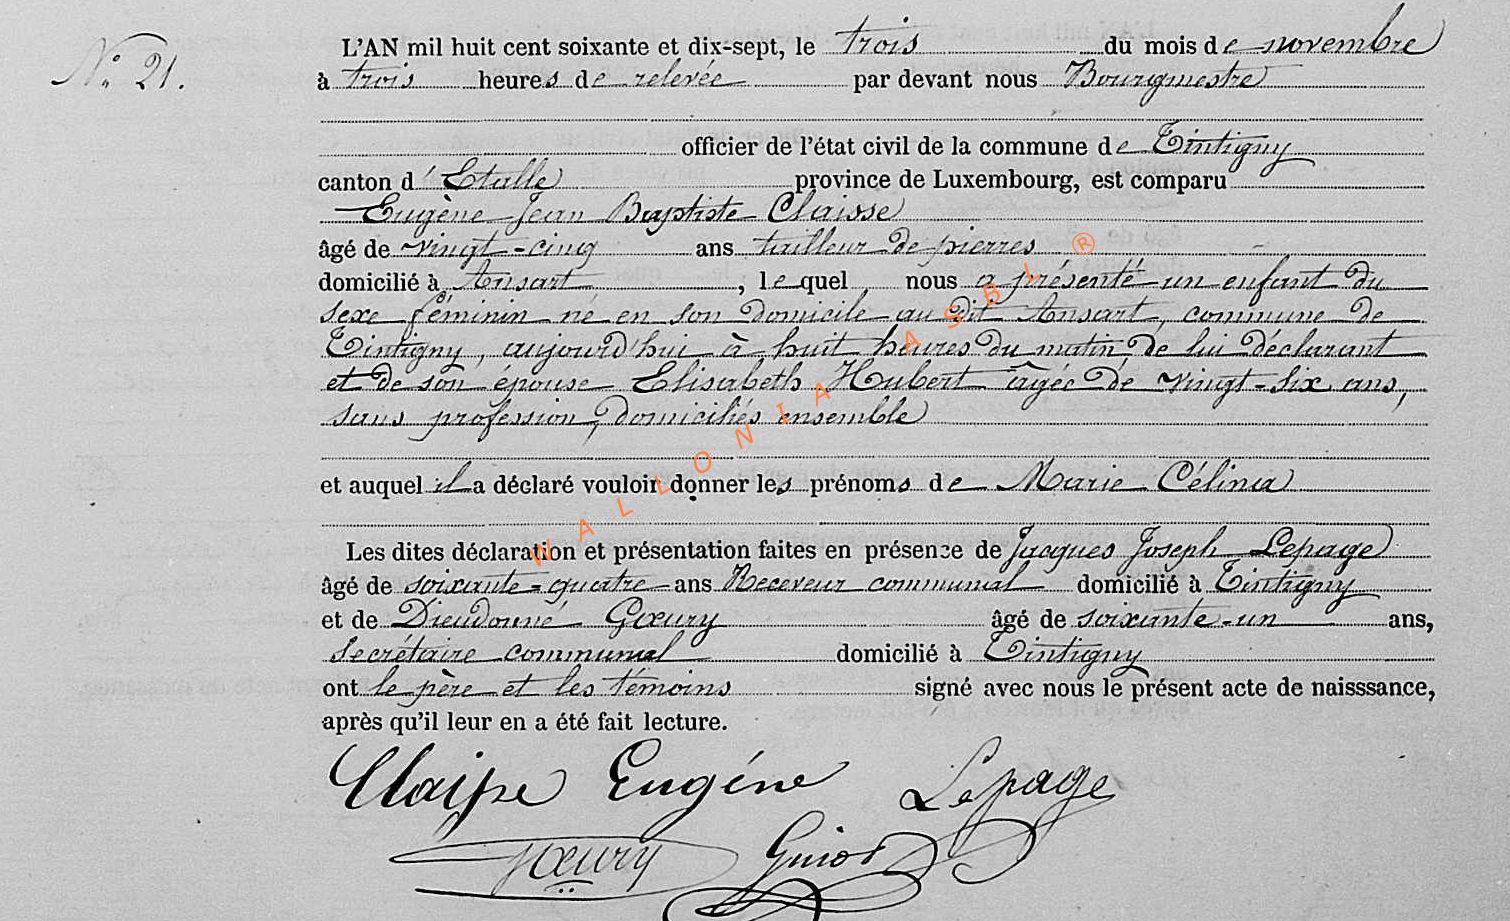 N° 21.
L'AN mil huit cent soixante et dix-sept, le trois du mois de novembre
à trois heures de relevée par devant nous Bourgmestre
officier de l'état civil de la commune de Tintigny
canton d'Etalle province de Luxembourg, est comparu
Eugène Jean Baptiste Claisse
âgé de vingt-cinq ans tailleur de pierres
domicilié à Ansart, lequel nous a présenté un enfant du
sexe féminin né en son domicile au dit Ansart, commune de
Tintigny, aujourd'hui à huit heures du matin, de lui déclarant
et de son épouse Elisabeth Hubert âgée de vingt-six ans,
sans profession, domiciliés ensemble
et auquel il a déclaré vouloir donner les prénoms de Marie Célina
Les dites déclaration et présentation faites en présence de Jacques Joseph Lepage
âgé de soixante-quatre ans Receveur communal domicilié à Tintigny
et de Dieudonné Gœury âgé de soixante-un ans,
Secrétaire communal domicilié à Tintigny
ont le père et les témoins signé avec nous le présent acte de naisssance,
après qu'il leur en a été fait lecture.
Claisse Eugéne Lepage
Gœury Guiot
WALLONIA ASBL ®